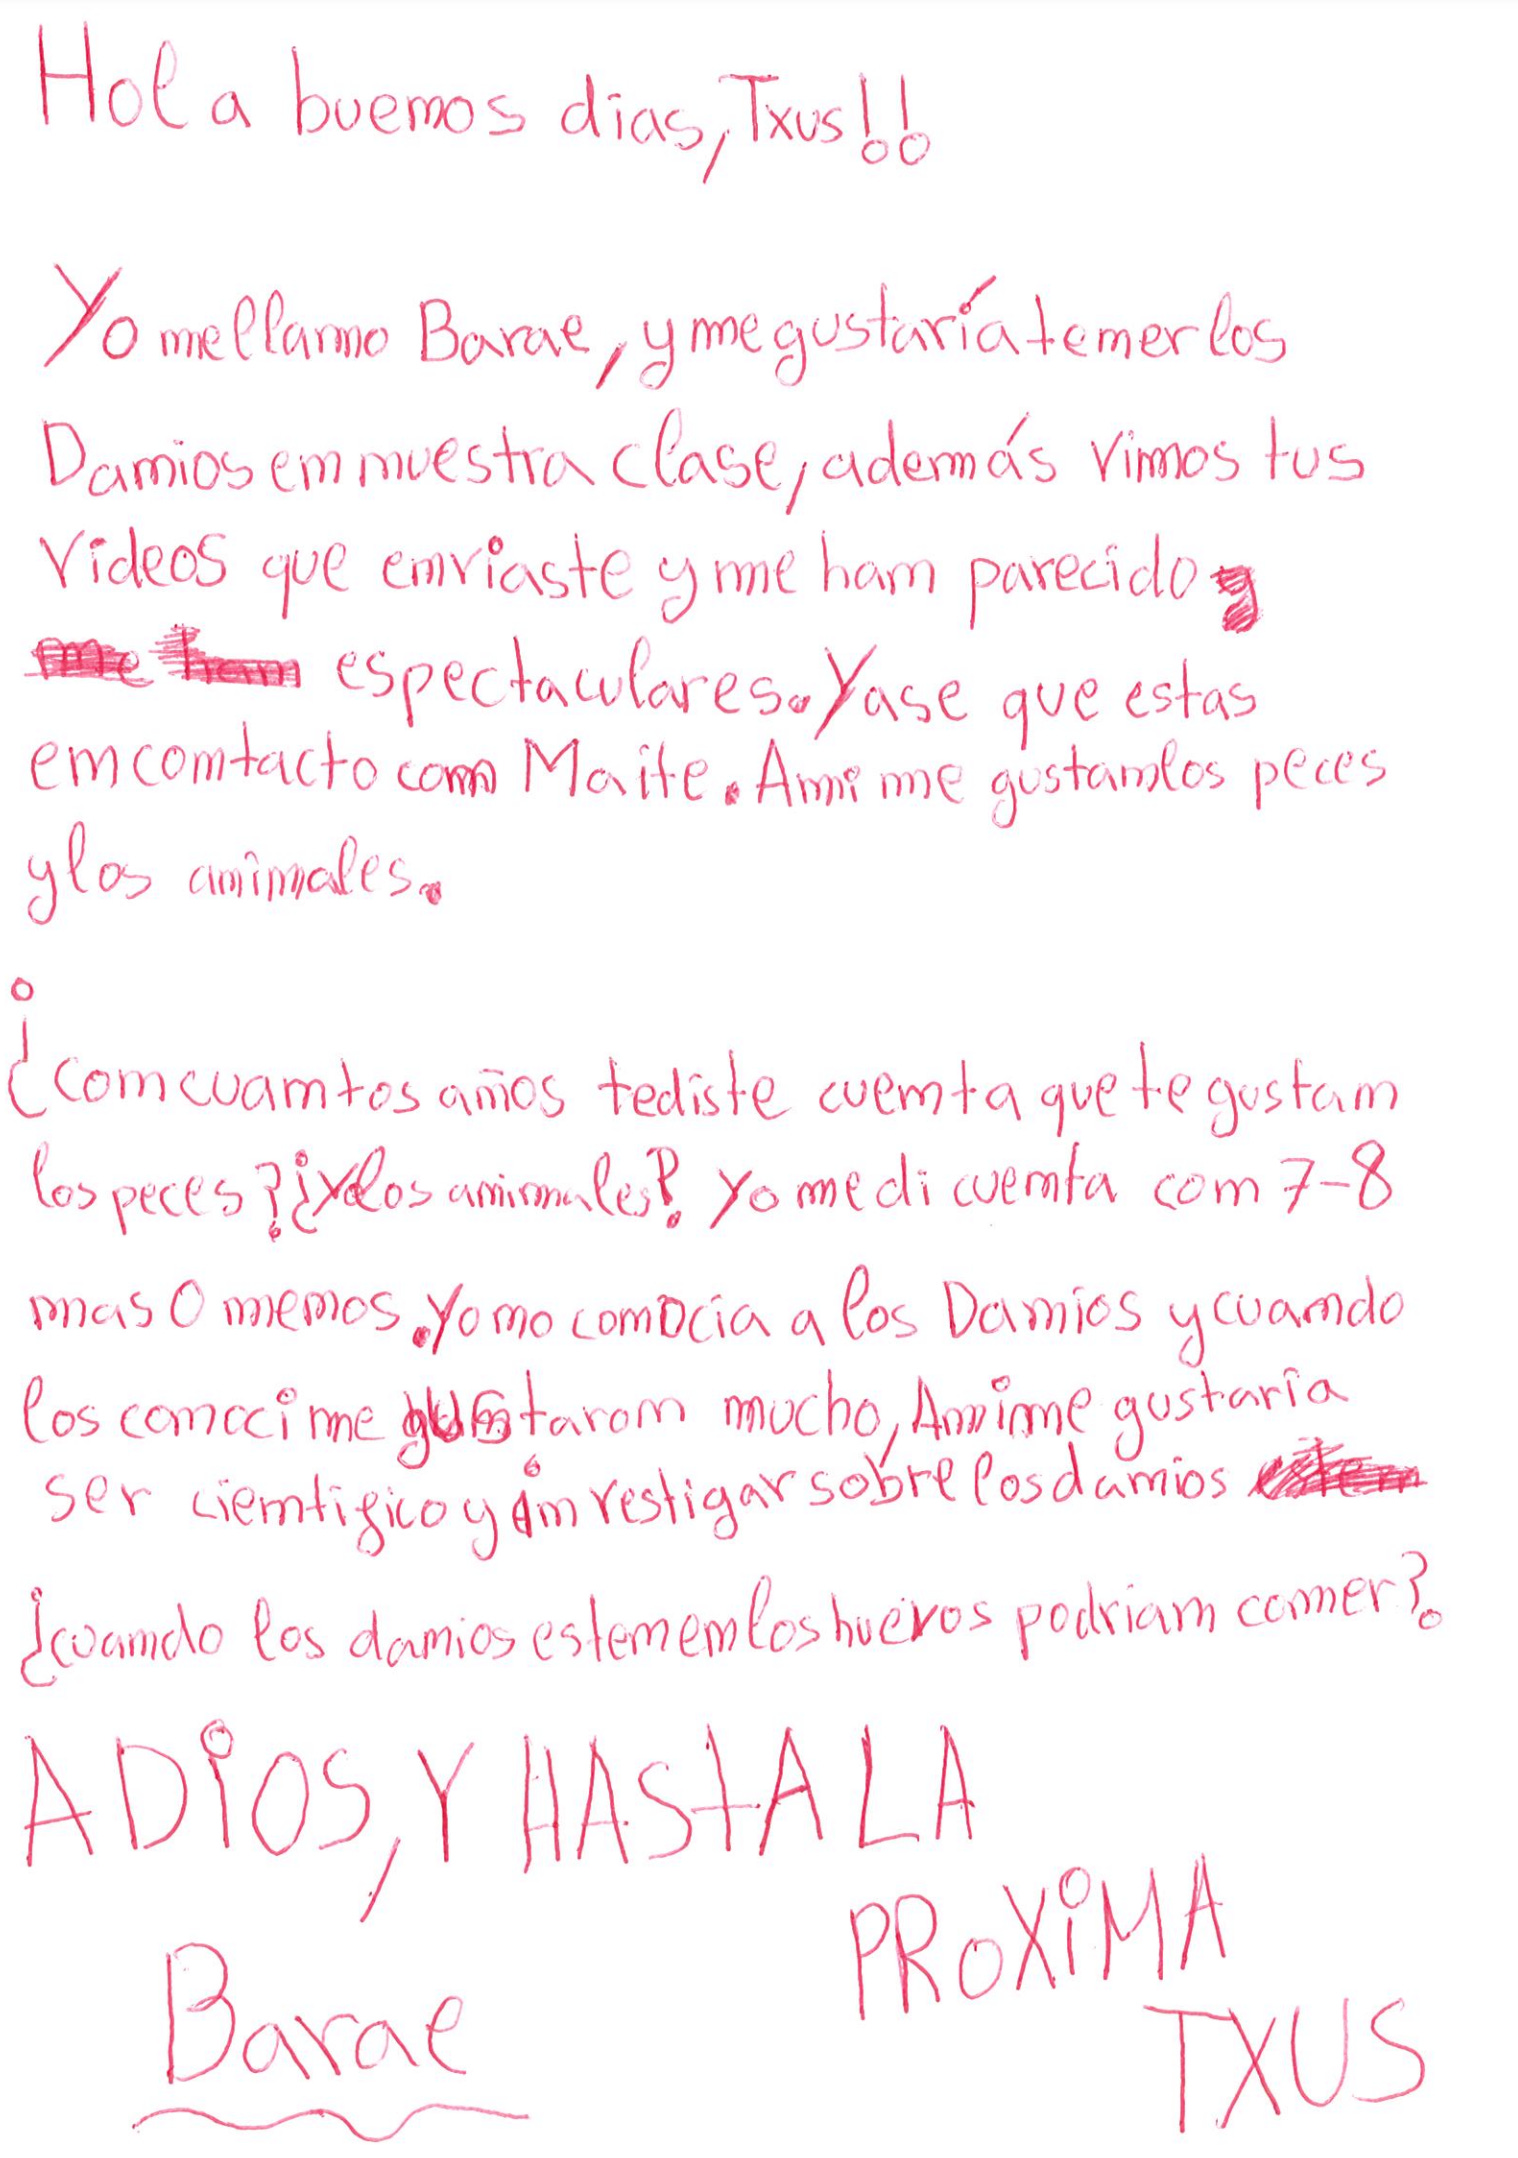 Hola buenos dias, Txus!!
Yo me llamo Barae, y me gustaría tener los
Danios en nuestra clase, además vimos tus
Videos que enviaste y me han parecido
me han espectaculares. Ya se que estas
en contacto con Maite. A mi me gustan los peces
y los animales.
¿con cuantos años te diste cuenta que te gustan
los peces? ¿Y los animales? Yo me di cuenta con 7-8
mas O menos. Yo no conocia a los Danios y cuando
los conoci me gustaron mucho, A mi me gustaria
ser cientifico y investigar sobre los danios
¿cuando los danios esten en los huevos podrian comer?
ADIOS, Y HASTA LA
PROXIMA
TXUS
Barae